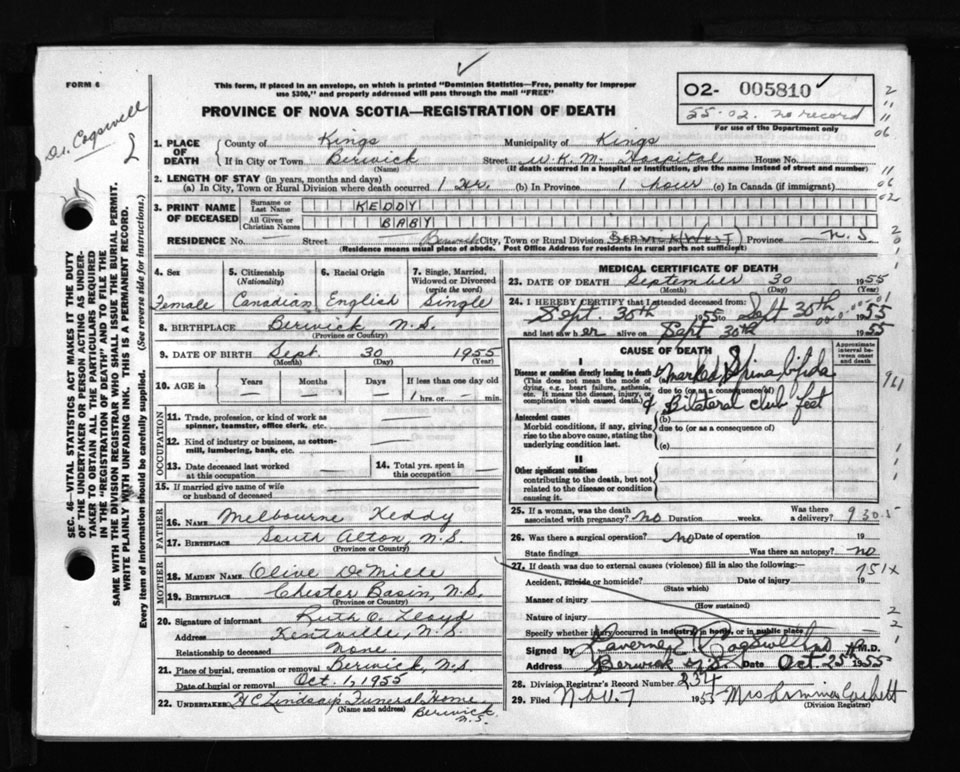 FORM 6
This form, if placed in an envelope, on which is printed "Dominion Statistics—Free, penalty for improper
use $300," and properly addressed will pass through the mail "FREE"
PROVINCE OF NOVA SCOTIA—REGISTRATION OF DEATH
02- 005810
55-02. no record
For use of the Department only
Dr. Cogswell
SEC. 46—VITAL STATISTICS ACT MAKES IT THE DUTY
OF THE UNDERTAKER OR PERSON ACTING AS UNDER-
TAKER TO OBTAIN ALL THE PARTICULARS REQUIRED
IN THE "REGISTRATION OF DEATH" AND TO FILE THE
SAME WITH THE DIVISION REGISTRAR WHO SHALL ISSUE THE BURIAL PERMIT.
WRITE PLAINLY WITH UNFADING INK. THIS IS A PERMANENT RECORD.
Every item of information should be carefully supplied. (See reverse side for instructions.)
1. PLACE OF DEATH
County of Kings Municipality of Kings
If in City or Town Berwick Street W.K.M. Hospital House No.
(Name) (If death occurred in a hospital or institution, give the name instead of street and number)
2. LENGTH OF STAY (in years, months and days)
(a) In City, Town or Rural Division where death occurred 1 hr. (b) In Province 1 hour (c) In Canada (if immigrant)
3. PRINT NAME OF DECEASED
Surname or Last Name KEDDY
All Given or Christian Names BABY
RESIDENCE No. — Street — Berwick City, Town or Rural Division BERWICK (WEST) Province N.S.
(Residence means usual place of abode. Post Office Address for residents in rural parts not sufficient)
4. Sex Female
5. Citizenship (Nationality) Canadian
6. Racial Origin English
7. Single, Married, Widowed or Divorced (write the word) Single
8. BIRTHPLACE Berwick N.S.
(Province or Country)
9. DATE OF BIRTH Sept. 30 1955
(Month) (Day) (Year)
10. AGE in Years Months Days If less than one day old
— — — 1 hrs. or — min.
OCCUPATION
11. Trade, profession, or kind of work as
spinner, teamster, office clerk, etc. —
12. Kind of industry or business, as cotton-
mill, lumbering, bank, etc. —
13. Date deceased last worked
at this occupation —
14. Total yrs. spent in
this occupation —
15. If married give name of wife
or husband of deceased —
FATHER
16. NAME Melbourne Keddy
17. BIRTHPLACE South Alton, N.S.
(Province or Country)
MOTHER
18. MAIDEN NAME Olive DeMille
19. BIRTHPLACE Chester Basin, N.S.
(Province or Country)
20. Signature of informant Ruth O. Lloyd
Address Kentville, N.S.
Relationship to deceased None.
21. Place of burial, cremation or removal Berwick, N.S.
Date of burial or removal Oct. 1, 1955
22. UNDERTAKER H C Lindsay Funeral Home
(Name and address) Berwick N.S.
MEDICAL CERTIFICATE OF DEATH
23. DATE OF DEATH September 30 1955
(Month) (Day) (Year)
24. I HEREBY CERTIFY that I attended deceased from:
Sept. 30th 1955 to Sept 30th 1955
and last saw her alive on Sept 30th 1955
CAUSE OF DEATH
Approximate interval between onset and death
I
Disease or condition directly leading to death
(This does not mean the mode of
dying, e.g., heart failure, asthenia,
etc. It means the disease, injury, or
complication which caused death.)
(a) Marked Spina bifida
due to (or as a consequence of)
& Bilateral club feet
Antecedent causes
Morbid conditions, if any, giving
rise to the above cause, stating the
underlying condition last.
(b)
due to (or as a consequence of)
(c)
II
Other significant conditions
contributing to the death, but not
related to the disease or condition
causing it.
25. If a woman, was the death
associated with pregnancy? no Duration weeks. Was there a delivery?
930.5
26. Was there a surgical operation? no Date of operation 19
State findings Was there an autopsy? no
27. If death was due to external causes (violence) fill in also the following:—
751x
Accident, suicide or homicide? Date of injury 19
(State which)
Manner of injury
(How sustained)
Nature of injury
Specify whether injury occurred in industry, in home, or in public place
Signed by Laverne R. Cogswell M.D.
Address Berwick N.S. Date Oct. 25th 1955
28. Division Registrar's Record Number 234
29. Filed Nov. 7 1955
(Division Registrar)